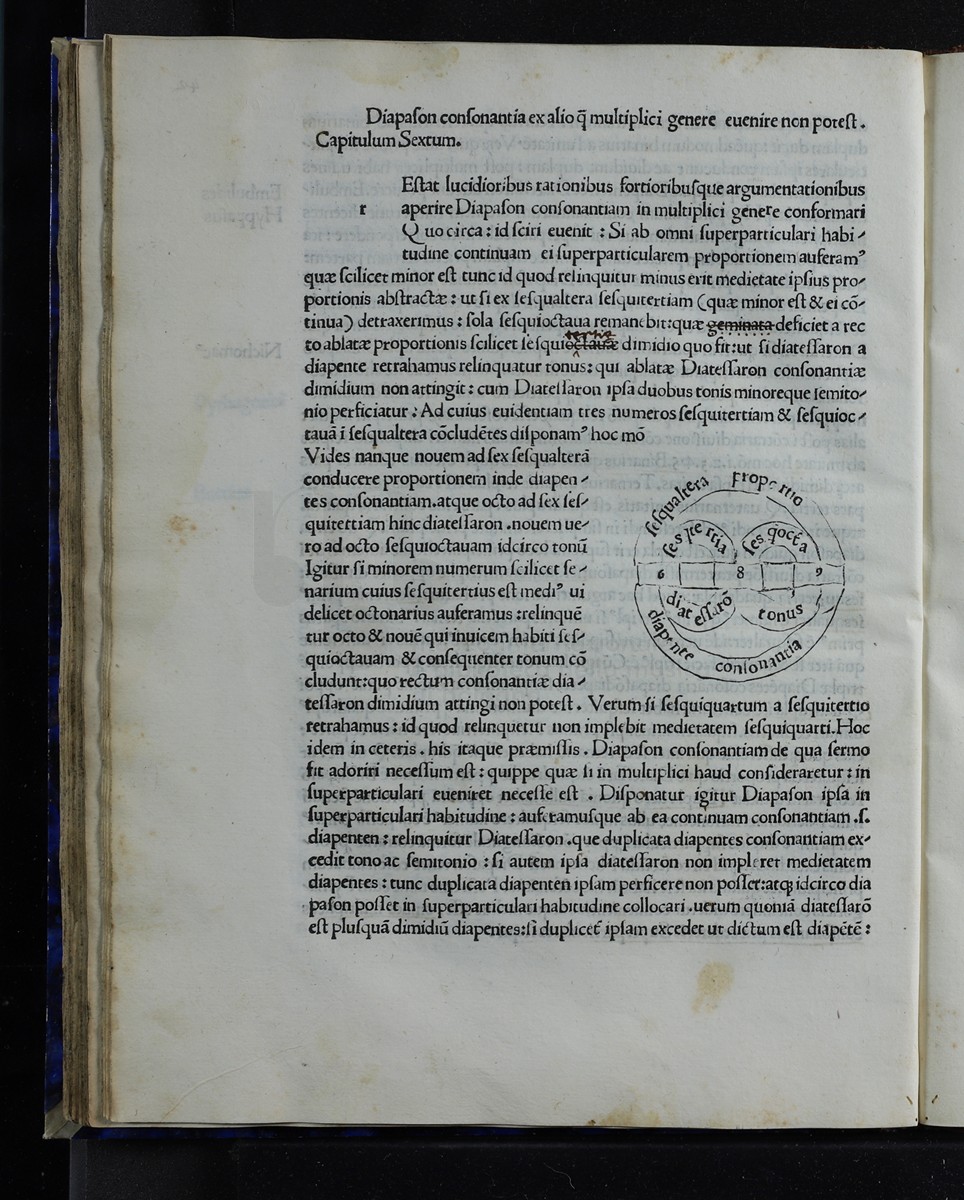 Diapaſon conſonantia ex alio q̄ multiplici genere euenire non poteſt.
Capitulum Sextum.
Eſtat lucidioribus rationibus fortioribuſque argumentationibus
r aperire Diapaſon conſonantiam in multiplici genere conformari
Quo circa: id ſciri euenit: Si ab omni ſuperparticulari habi-
tudine continuam ei ſuperparticularem proportionem auferamꝰ
quæ ſcilicet minor eſt tunc id quod relinquitur minus erit medietate ipſius pro-
portionis abſtractæ: ut ſi ex ſeſqualtera ſeſquitertiam (quæ minor eſt & ei cō-
tinua) detraxerimus: ſola ſeſquioctaua remanebit: quæ geminata deficiet a rec
tertiæ
to ablatæ proportionis ſcilicet ſeſquioctauæ dimidio quo fit: ut ſi diateſſaron a
diapente retrahamus relinquatur tonus: qui ablatæ Diateſſaron conſonantiæ
dimidium non attingit: cum Diateſſaron ipſa duobus tonis minoreque ſemito-
nio perficiatur: Ad cuius euidentiam tres numeros ſeſquitertiam & ſeſquioc-
tauā ī ſeſqualtera cōcludētes diſponamꝰ hoc mō
Vides nanque nouem ad ſex ſeſqualterā
conducere proportionem inde diapen-
tes conſonantiam. atque octo ad ſex ſeſ-
quitertiam hinc diateſſaron. nouem ue-
ro ad octo ſeſquioctauam idcirco tonū
Igitur ſi minorem numerum ſcilicet ſe-
narium cuius ſeſquitertius eſt mediꝰ ui
delicet octonarius auferamus: relinquē
tur octo & nouē qui inuicem habiti ſeſ-
quioctauam & conſequenter tonum cō
cludunt: quo rectum conſonantiæ dia-
ſeſqualtera proportio
ſeſ tertia
ſeſ qoctā
6 8 9
diateſſarō
tonus
diapente conſonantia
teſſaron dimidium attingi non poteſt. Verum ſi ſeſquiquartum a ſeſquitertio
retrahamus: id quod relinquetur non implebit medietatem ſeſquiquarti. Hoc
idem in ceteris. his itaque præmiſſis. Diapaſon conſonantiam de qua ſermo
fit adoriri neceſſum eſt: quippe quæ ſi in multiplici haud conſideraretur: in
ſuperparticulari eueniret neceſſe eſt. Diſponatur igitur Diapaſon ipſa in
ſuperparticulari habitudine: auferamuſque ab ea continuam conſonantiam .ſ.
diapenten: relinquitur Diateſſaron. que duplicata diapentes conſonantiam ex-
cedit tono ac ſemitonio: ſi autem ipſa diateſſaron non impleret medietatem
diapentes: tunc duplicata diapenten ipſam perficere non poſſet: atqꝫ idcirco dia
paſon poſſet in ſuperparticulari habitudine collocari. uerum quoniā diateſſarō
eſt pluſquā dimidiū diapentes: ſi duplicet̄ ipſam excedet ut dictum eſt diapētē: